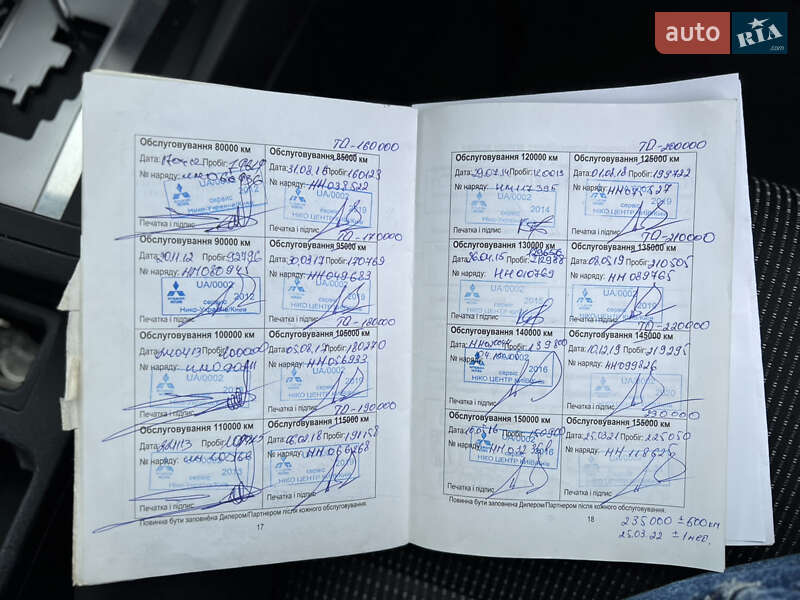 auto RIA .com
ТО-160000
Обслуговування 80000 км
Дата: Пробіг:
№ наряду:
UA/0002
2012
сервіс
Ніко-Україна/Київ
Печатка і підпис
Обслуговування 85000 км
Дата: 31.08.16 Пробіг: 160123
№ наряду: НН038522
UA/0002
2019
НІКО ЦЕНТР КИЇВ
Печатка і підпис
ТО-170000
Обслуговування 90000 км
Дата: 30.11.12 Пробіг: 92796
№ наряду:
UA/0002
сервіс 2012
Ніко-Україна/Київ
Печатка і підпис
Обслуговування 95000 км
Дата: 30.03.17 Пробіг: 170769
№ наряду: НН049683
UA/0002
2019
НІКО ЦЕНТР КИЇВ
Печатка і підпис
ТО-180000
Обслуговування 100000 км
Дата: Пробіг: 100000
№ наряду:
UA/0002
Печатка і підпис
Обслуговування 105000 км
Дата: 05.08.17 Пробіг: 180270
№ наряду: НН056933
UA/0002
2019
НІКО ЦЕНТР КИЇВ
Печатка і підпис
ТО-190000
Обслуговування 110000 км
Дата: Пробіг:
№ наряду:
UA/0002
сервіс 2013
Печатка і підпис
Обслуговування 115000 км
Дата: Пробіг: 191158
№ наряду: НН066268
UA/0002
сервіс
НІКО ЦЕНТР КИЇВ
Печатка і підпис
Повинна бути заповнена Дилером/Партнером після кожного обслуговування.
17
ТО-200000
Обслуговування 120000 км
Дата: 29.07.14 Пробіг: 120013
№ наряду: НН117395
UA/0002
сервіс 2014
НІКО ЦЕНТР КИЇВ
Печатка і підпис
Обслуговування 125000 км
Дата: 01.08.18 Пробіг: 199722
№ наряду:
UA/0002
сервіс 2019
НІКО ЦЕНТР КИЇВ
Печатка і підпис
ТО-210000
Обслуговування 130000 км
Дата: 26.04.15 Пробіг:
№ наряду: НН010769
UA/0002
2015
НІКО ЦЕНТР КИЇВ
Печатка і підпис
Обслуговування 135000 км
Дата: 08.05.19 Пробіг: 210505
№ наряду: НН089765
UA/0002
2019
НІКО ЦЕНТР КИЇВ
Печатка і підпис
ТО-220000
Обслуговування 140000 км
Дата: Пробіг: 139800
№ наряду:
UA/0002
сервіс 2016
НІКО ЦЕНТР КИЇВ
Печатка і підпис
Обслуговування 145000 км
Дата: 10.12.19 Пробіг: 219295
№ наряду: НН099826
UA/0002
2020
НІКО ЦЕНТР КИЇВ
Печатка і підпис
230000
Обслуговування 150000 км
Дата: Пробіг:
№ наряду:
UA/0002
НІКО ЦЕНТР КИЇВ
Печатка і підпис
Обслуговування 155000 км
Дата: 25.03.21 Пробіг: 225050
№ наряду:
Печатка і підпис
Повинна бути заповнена Дилером/Партнером після кожного обслуговування.
18
235000 ± 600 км
25.03.22 ± 1 мес.